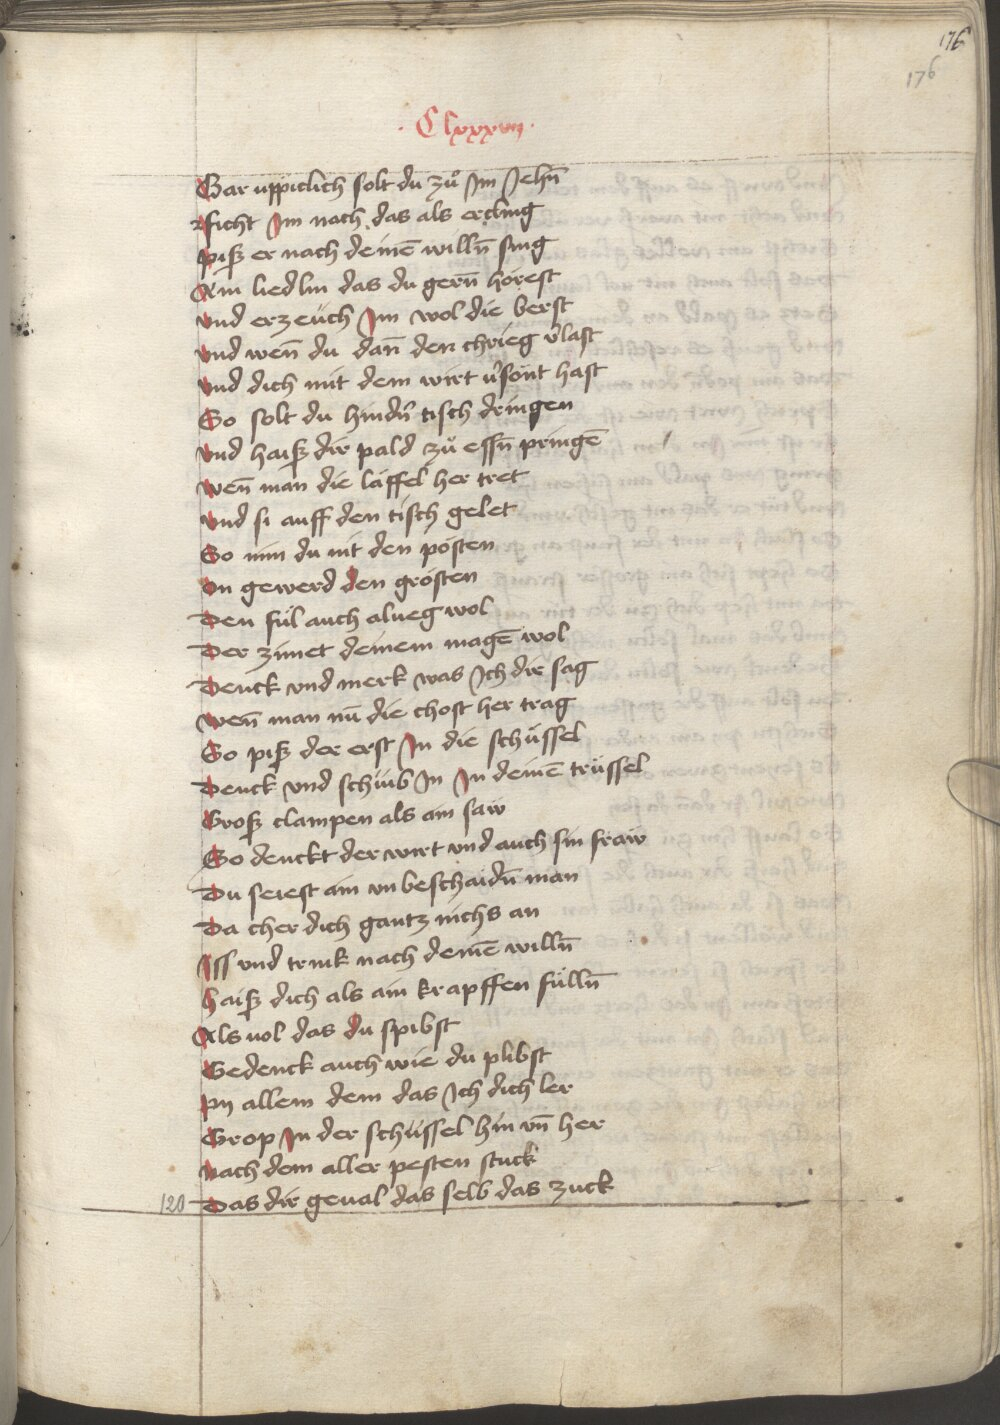 176
176
· Clxxxvij ·
Gar uppiclich solt du zů Im Jehn̄
Richt Im nach das als ercling
piß er nach deinē willn̄ sing
Ain liedlin das du gern̄ hörest
vnd erzeüch Im wol die berst
vnd wen̄ du dan̄ den chrieg v̓last
vnd dich mit dem wirt v̓sönt hast
So solt du hindn̓ tisch dringen
vnd haiß dir pald zů essn̄ pringē
wen̄ man die läffel her tret
vnd si auff den tisch gelet
So nim du nit den pösten
On gewerd den grösten
Den fül auch alueg wol
Der zimet deinem magē wol
Denck vnd merk was Ich dir sag
wen̄ man nū die chost her trag
So piß der erst In die schüssel
Denck vnd schüb In In deinē trüssel
Groß clampen als ain saw
So denckt der wirt vnd auch sin fraw
Du seiest ain vnbeschaidn̄ man
Da cher dich gantz nichs an
Iss vnd trink nach deinē willn̄
haiß dich als ain krapffen fülln̄
Als uol das du spibst
Gedenck auch wie du plibst
pij allem dem das Ich dich ler
Grop In der schüssel hin vn̄ her
nach dem aller pesten stuck
120 Das dir geual das selb das zuck